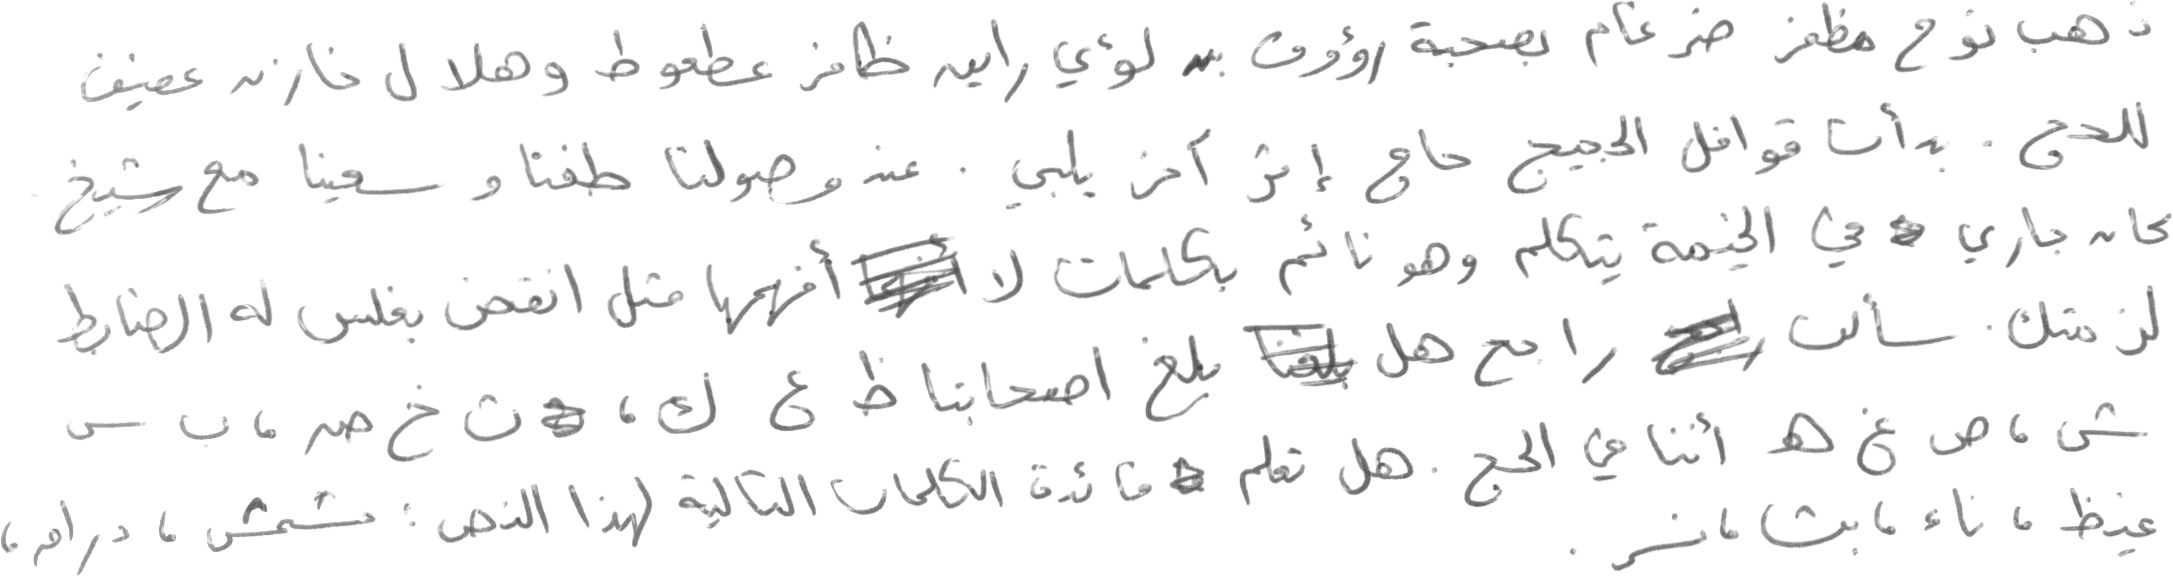 ذهب نوح مظفر ضرغام بصحبة رؤوف بن لؤي راين ظافر عطعوط وهلال خازن عفيف
للحج . بدأت قوافل الحجيج حاج إثر آخر يلبي . عند وصولنا طفنا وسعينا مع شيخ
كان جاري في الخيمة يتكلم وهو نائم بكلمات لا أفهمها مثل انقض بغلس له الضابط
لز متك . سألت راجح هل بلغ اصحابنا ظ ع ك ، ث خ ص ، ب س
ش ، ض غ ه أننا في الحج . هل تعلم فائدة الكلمات التالية لهذا النص : مشمش ، دراق ،
غيظ ، ناء ، بث ، نسر .